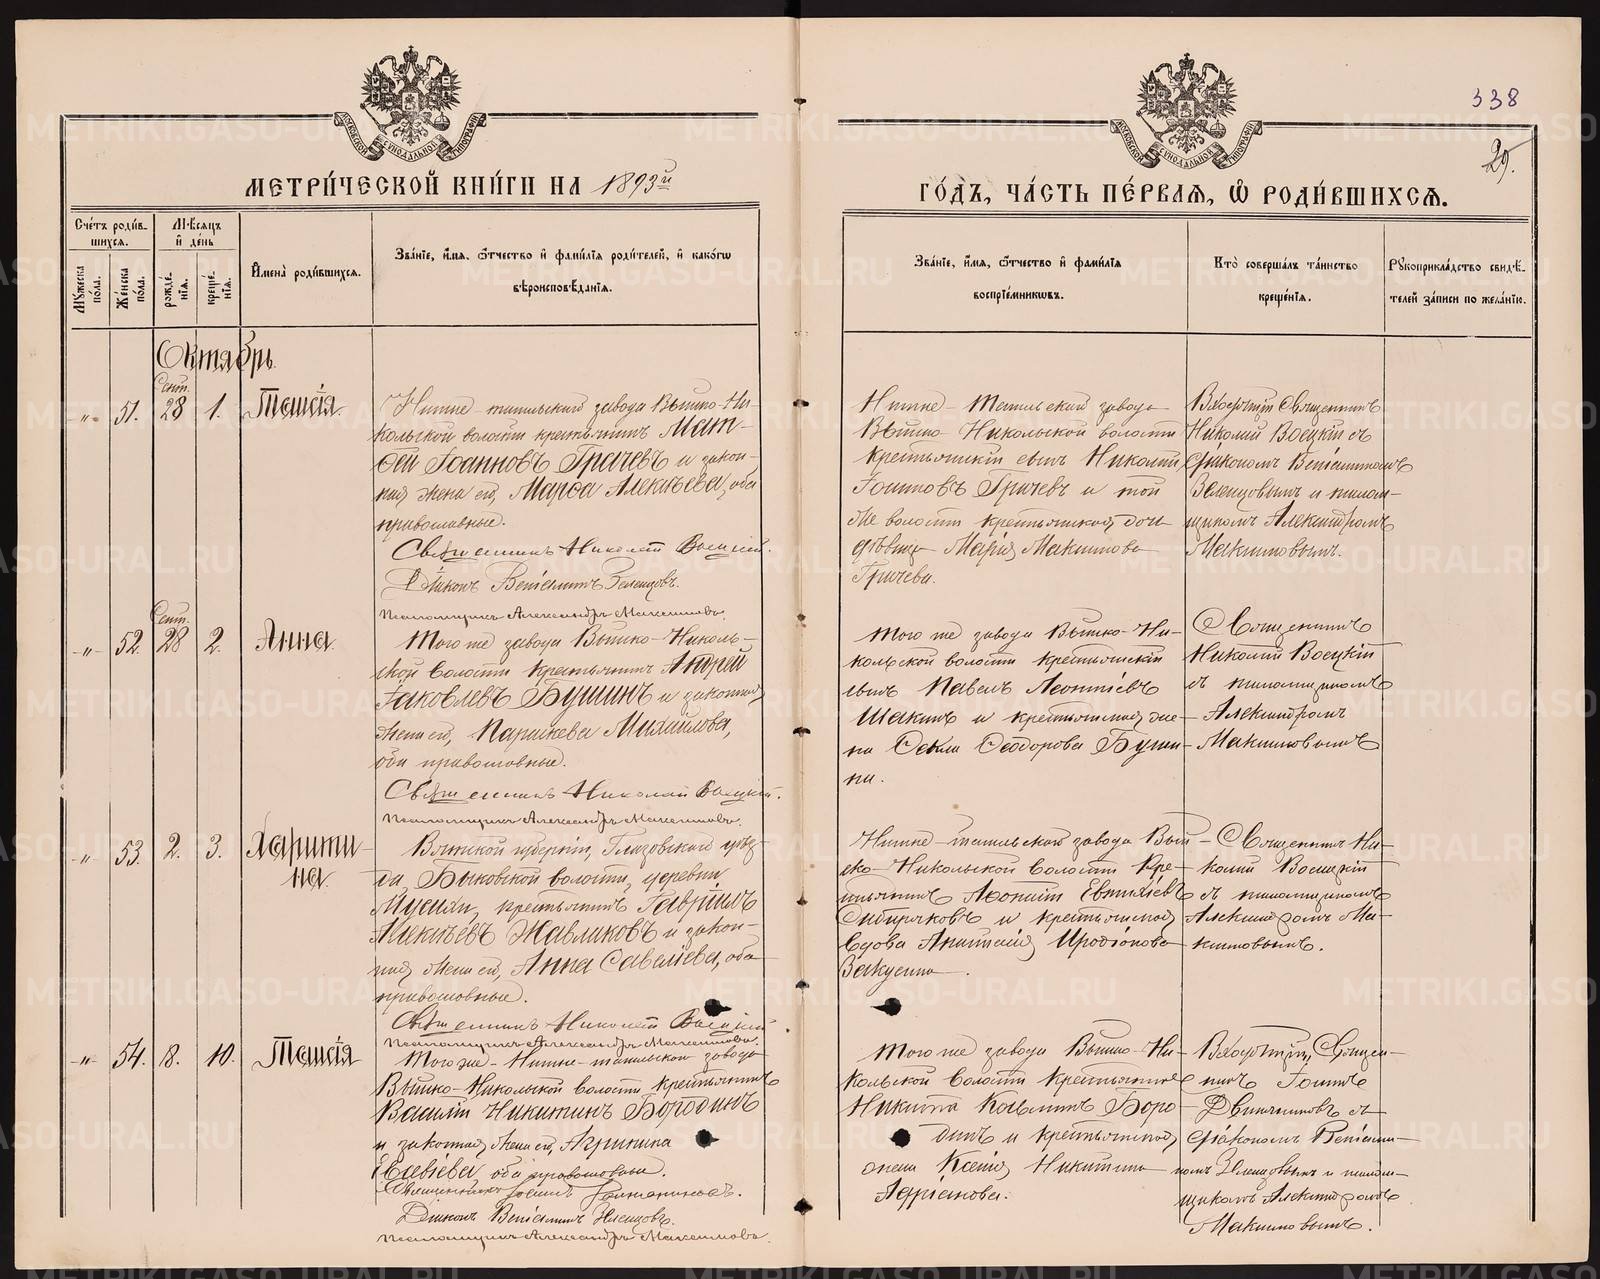 338
29.
МОСКОВСКОЙ СѴНОДАЛЬНОЙ ТИПОГРАФІИ
МОСКОВСКОЙ СѴНОДАЛЬНОЙ ТИПОГРАФІИ
МЕТРИ́ЧЕСКОЙ КНИ́ГИ НА 1893й
ГО́ДЪ, ЧА́СТЬ ПЕ́РВАЯ, Ѡ РОДИ́ВШИХСѦ.
Сче́тъ роди́в-
шихся.
Мꙋжеска по́ла.
Же́нска по́ла.
Мѣ́сяцъ
и де́нь
рожде́-
нїя.
креще́-
нїя.
Имена̀ роди́вшихся.
Зва́нїе, и́мя, ѻ́тчество и фами́лїя роди́телей, и како́гѡ
вѣроисповѣ́данїя.
Зва́нїе, и́мя, ѻ́тчество и фами́лїя
воспрїе́мникѡвъ.
Кто̀ соверша́лъ та́инство
креще́нїя.
Рꙋкоприкла́дство свидѣ́-
телей за́писи по жела́нїю.
Октябрь.
Сент.
„ 51. 28 1. Таисія.
Нижне-тагильскаго завода Выйско-Ни-
кольской волости крестьянинъ Мат-
ѳей Іоанновъ Грачевъ и закон-
ная жена его, Марѳа Алексѣева, оба
православные.
Священникъ Николай Воецкій.
Діаконъ Веніаминъ
Псаломщикъ Александръ Максимовъ.
Нижне-Тагильскаго завода
Выйско-Никольской волости
крестьянскій сынъ Николай
Іоанновъ Грачевъ и той
же волости крестьянская дочь
дѣвица Марія Максимова
Грачева.
Священникъ
Николай Воецкій съ
діакономъ Веніаминомъ
и псалом-
щикомъ Александромъ
Максимовымъ.
Сент.
„ 52. 28 2. Анна.
Того же завода Выйско-Николь-
ской волости крестьянинъ Андрей
Іаковлевъ Бушинъ и законная
жена его, Параскева Михаилова,
оба православные.
Священникъ Николай Воецкій.
Псаломщикъ Александръ Максимовъ.
Того же завода Выйско-Ни-
кольской волости крестьянскій
сынъ Павелъ Леонтіевъ
Шакинъ и крестьянская же-
на Ѳекла Ѳеодорова Буши-
на.
Священникъ
Николай Воецкій
съ псаломщикомъ
Александромъ
Максимовымъ
„ 53. 2. 3. Харити-
на.
Вятской губерніи, Глазовскаго уѣз-
да, Быковской волости, деревни
крестьянинъ Гавріилъ
Алексѣевъ Жавлаковъ и закон-
ная жена его, Анна Савеліева, оба
православные.
Священникъ Николай Воецкій
Псаломщикъ Александръ Максимовъ.
Нижне-тагильскаго завода Вый-
ско-Никольской волости кре-
стьянинъ Леонтій
Сибиряковъ и крестьянская
вдова Анастасія Иродіонова
Священникъ Ни-
колай Воецкій
съ псаломщикомъ
Александромъ Ма-
ксимовымъ.
„ 54. 8. 10. Таисія
Того же Нижне-тагильскаго завода
Выйско-Никольской волости крестьянинъ
Василій Никитинъ Бородинъ
и законная жена его, Агрипина
оба православные.
Священникъ
Діаконъ Веніаминъ
Псаломщикъ Александръ Максимовъ.
Того же завода Выйско-Ни-
кольской волости крестьяне
Никита Боро-
динъ и крестьянская
жена Ксенія Никитина
Адріанова.
Священ-
никъ Іоаннъ
съ
діакономъ Веніами-
номъ и псалом-
щикомъ Александромъ
Максимовымъ.
METRIKI.GASO-URAL.RU